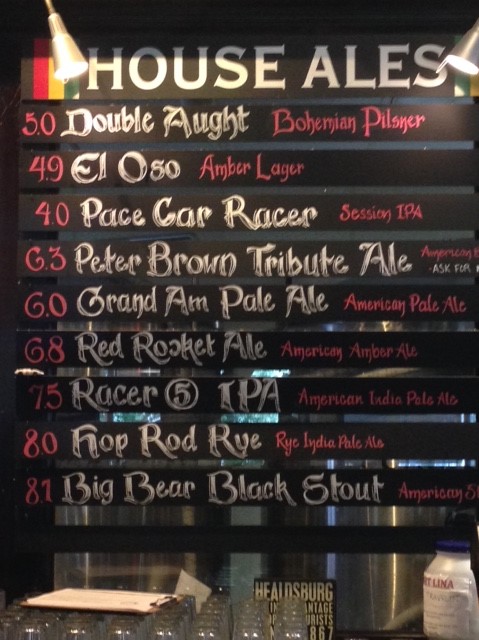 HOUSE ALES
5.0 Double Aught Bohemian Pilsner
4.9 El Oso Amber Lager
4.0 Pace Car Racer Session IPA
6.3 Peter Brown Tribute Ale American
-ASK FOR
6.0 Grand Am Pale Ale American Pale Ale
6.8 Red Rocket Ale American Amber Ale
7.5 Racer 5 IPA American India Pale Ale
8.0 Hop Rod Rye Rye India Pale Ale
8.1 Big Bear Black Stout American
HEALDSBURG
867